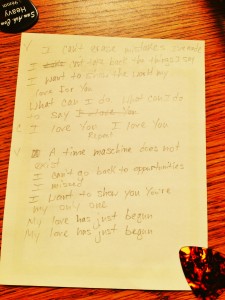 San Ark Enn
HEAVY
V I can't erase mistakes I made
I take back the things I say
I want to the
love for You
What can I do what can I do
to say
C I love You I love You
Repeat
V A time maschine does not
exist
I can't go back to opportunities
I missed
I want to show you You're
my only one
My love has just begun
My love has just begun